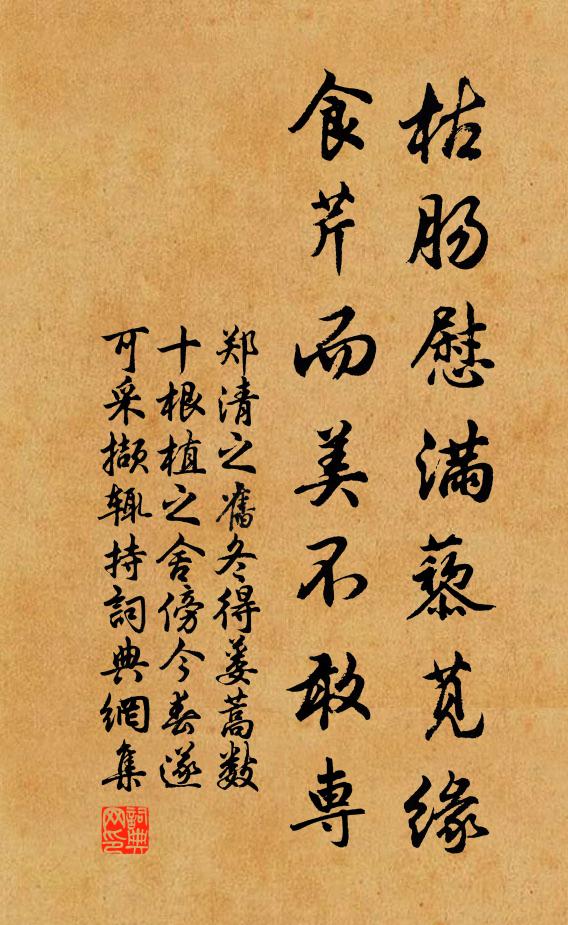 枯肠慰满藜苋缘
食芹而美不敢専
郑清之舊冬得蒌蒿数
十根植之舍傍今春遂
可采撷辄持詞典網集
詞典网印